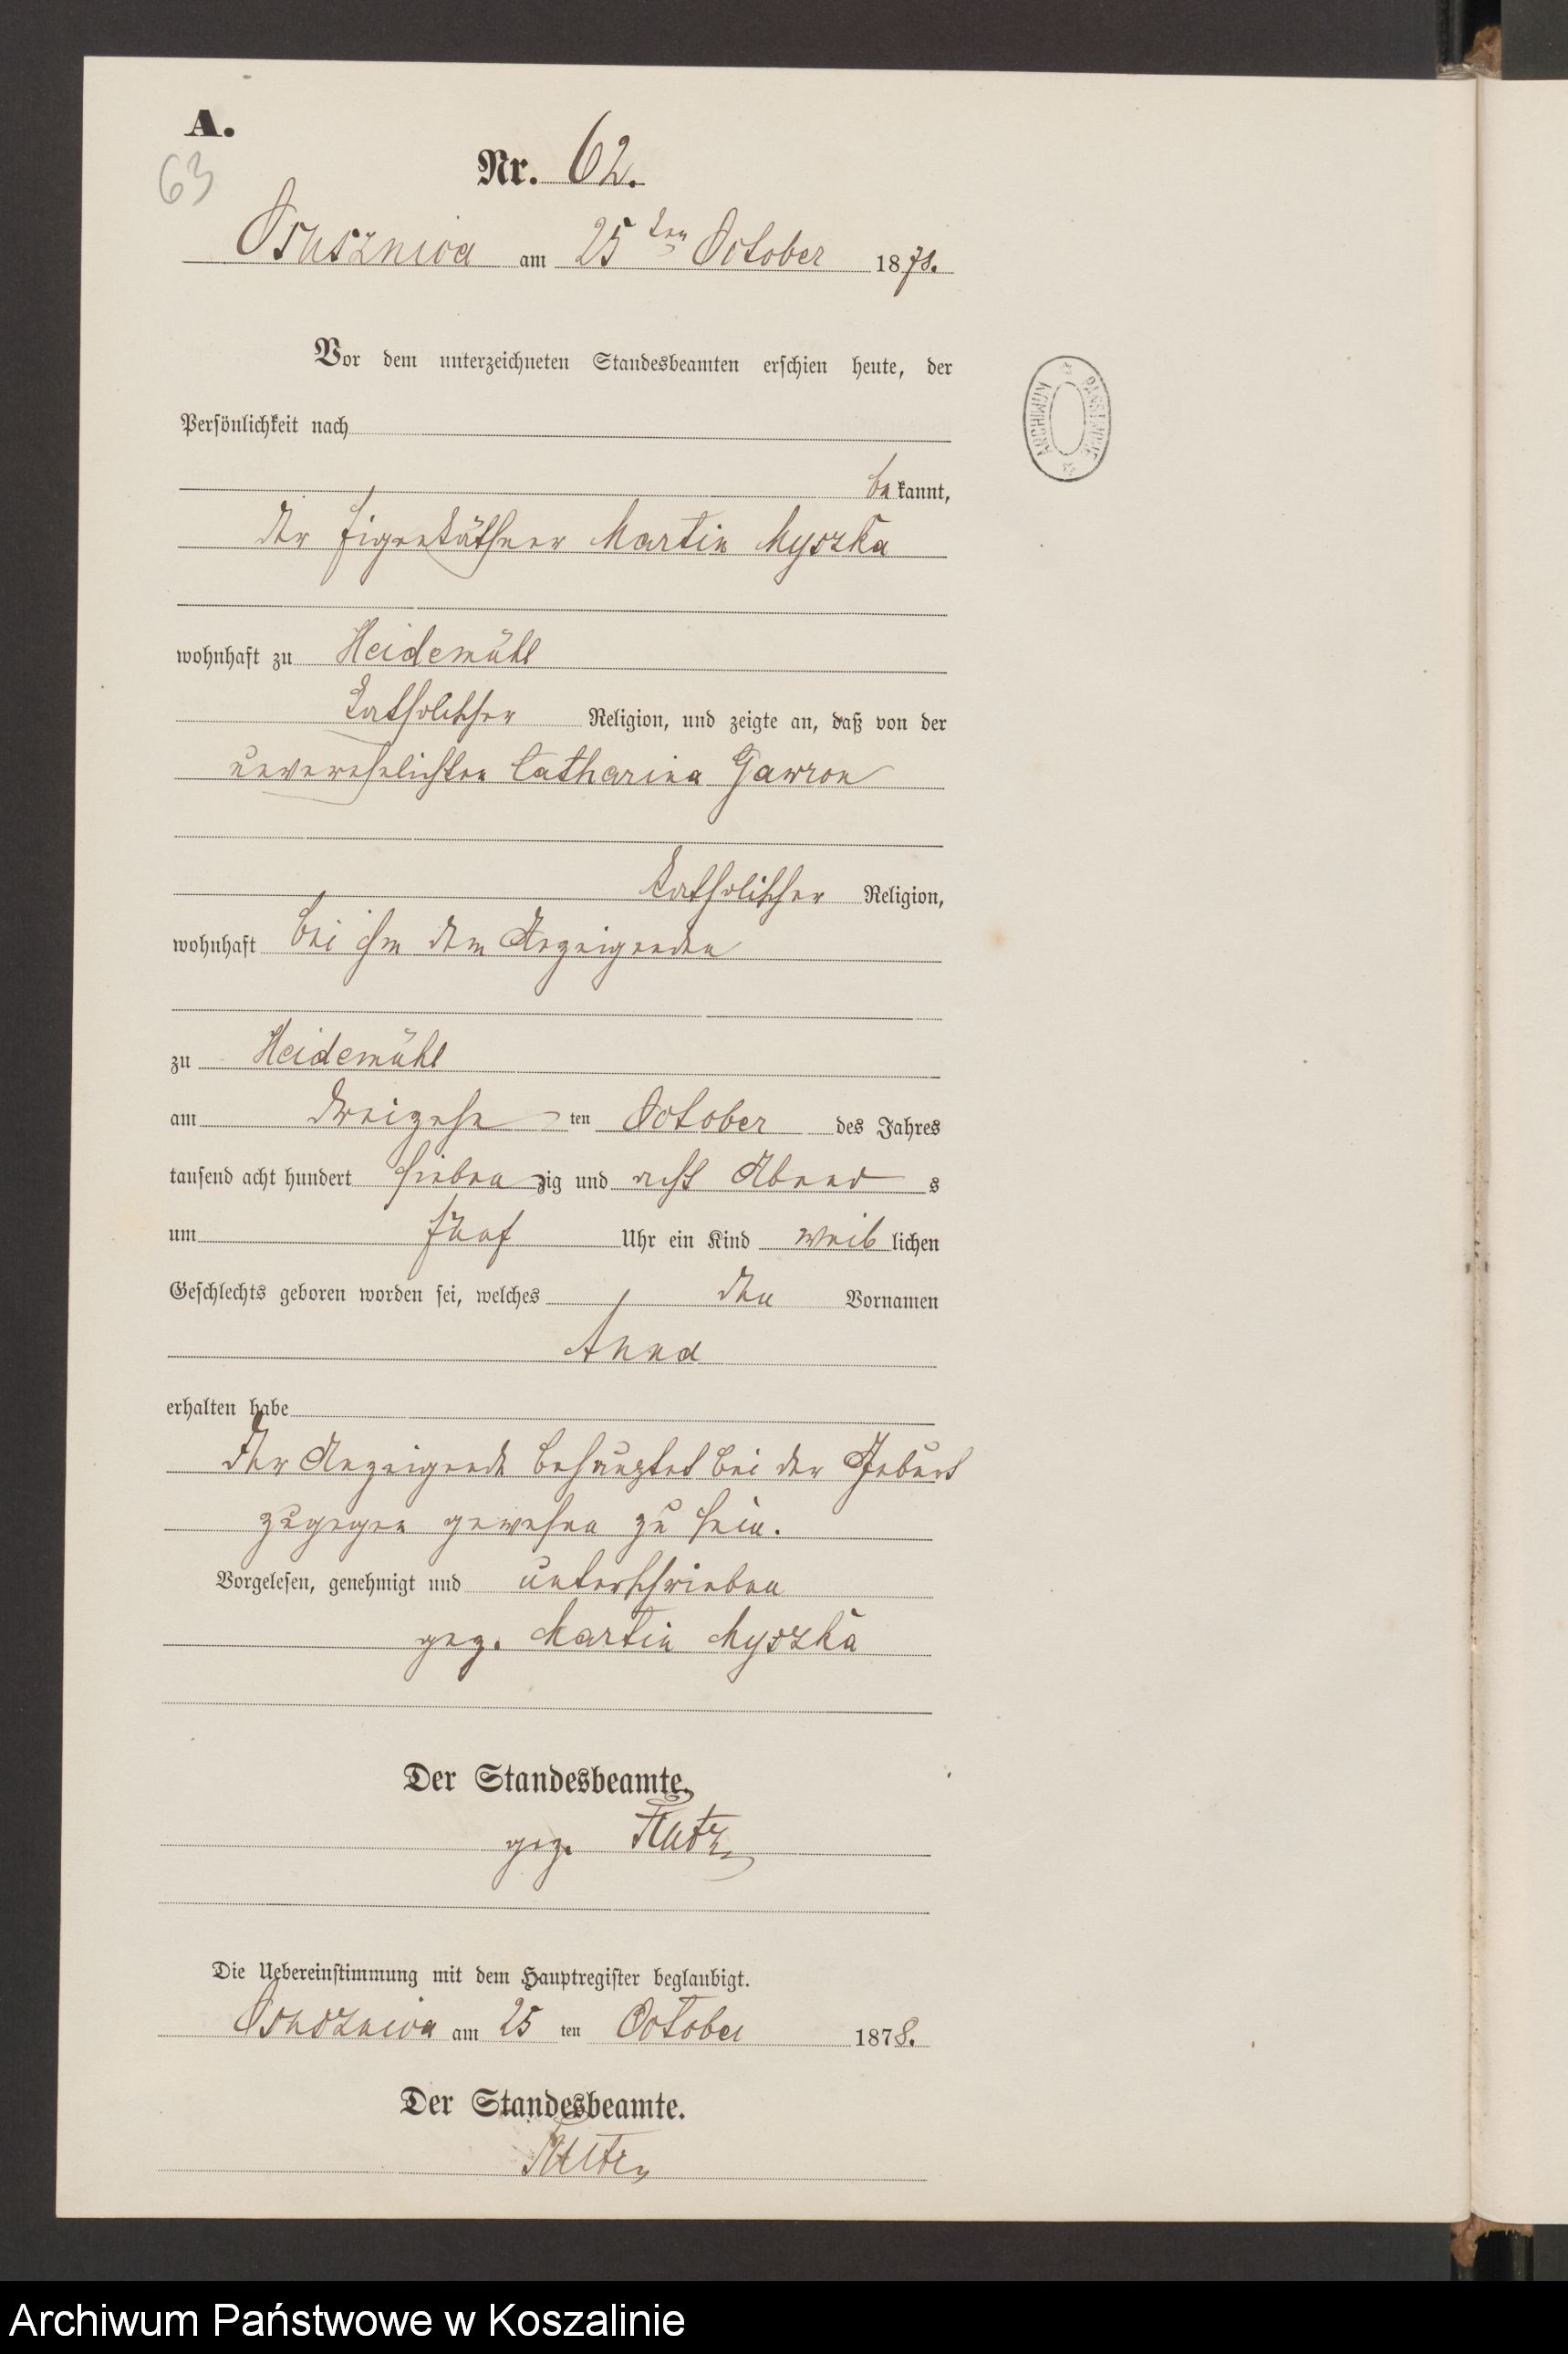 A.
63
Nr. 62.
Osusznica am 25ten October 1878.
Vor dem unterzeichneten Standesbeamten erschien heute, der
Persönlichkeit nach
bekannt,
der Eigenkäthner Martin Myszka
wohnhaft zu Heidemühl
katholischer Religion, und zeigte an, daß von der
unverehelichten Catharina Gawron
katholischer Religion,
wohnhaft bei ihm dem Anzeigenden
zu Heidemühl
am dreizehnten October des Jahres
tausend acht hundert siebenzig und acht Abends
um fünf Uhr ein Kind weiblichen
Geschlechts geboren worden sei, welches den Vornamen
Anna
erhalten habe
Der Anzeigende behauptet bei der Geburt
zugegen gewesen zu sein.
Vorgelesen, genehmigt und unterschrieben
gez. Martin Myszka
Der Standesbeamte.
gez.
Die Uebereinstimmung mit dem Hauptregister beglaubigt.
Osusznica am 25ten October 1878.
Der Standesbeamte.
Archiwum Państwowe w Koszalinie